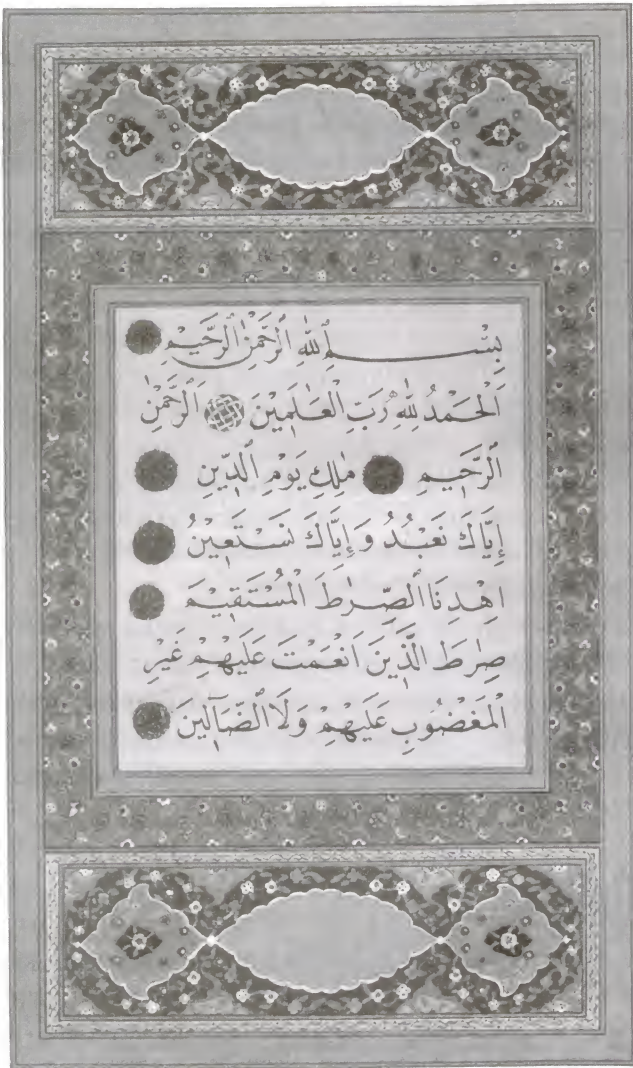 بِسْمِ اللّٰهِ الرَّحْمٰنِ الرَّحِيمِ
اَلْحَمْدُ لِلّٰهِ رَبِّ الْعَالَمِينَ اَلرَّحْمٰنِ
الرَّحِيمِ مٰلِكِ يَوْمِ الدِّينِ
اِيَّاكَ نَعْبُدُ وَاِيَّاكَ نَسْتَعِينُ
اِهْدِنَا الصِّرٰطَ الْمُسْتَقِيمَ
صِرٰطَ الَّذِينَ اَنْعَمْتَ عَلَيْهِمْ غَيْرِ
الْمَغْضُوبِ عَلَيْهِمْ وَلَا الضَّآلِّينَ